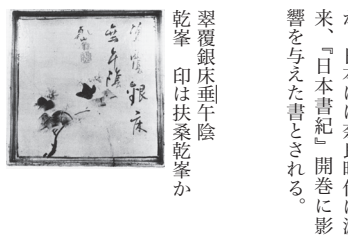 来、『日本書紀』開巻に影
響を与えた書とされる。
翠覆銀床垂午陰
乾峯　印は扶桑乾峯か
翠覆銀床
垂午陰